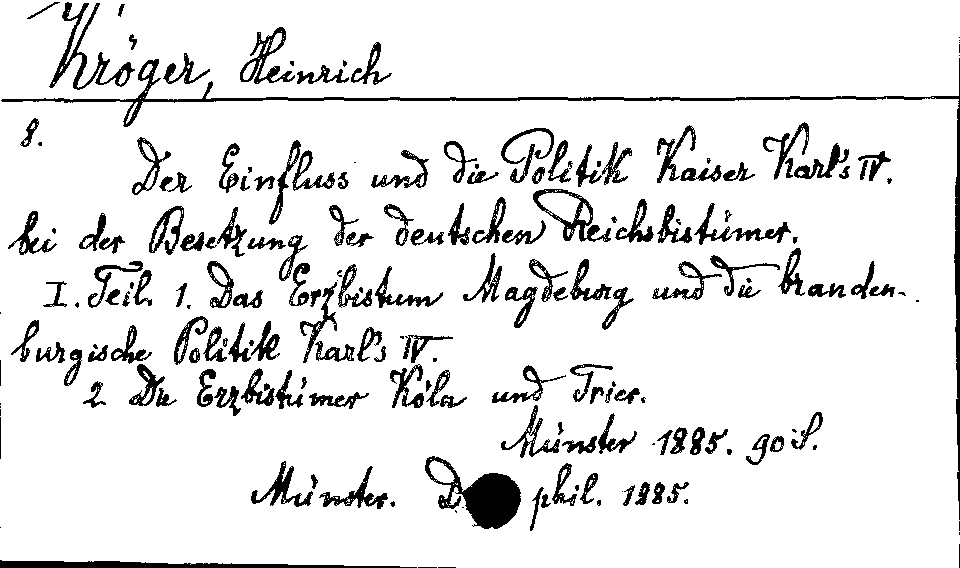 Kröger, Heinrich
8.
Der Einfluss und die Politik Kaiser Karl's IV.
bei der Besetzung der deutschen Reichsbistümer.
I. Teil. 1. Das Erzbistum Magdeburg und die branden-
burgische Politik Karl's IV.
2. Die Erzbistümer Köln und Trier.
Münster 1885. 90 S.
Münster. D phil. 1885.